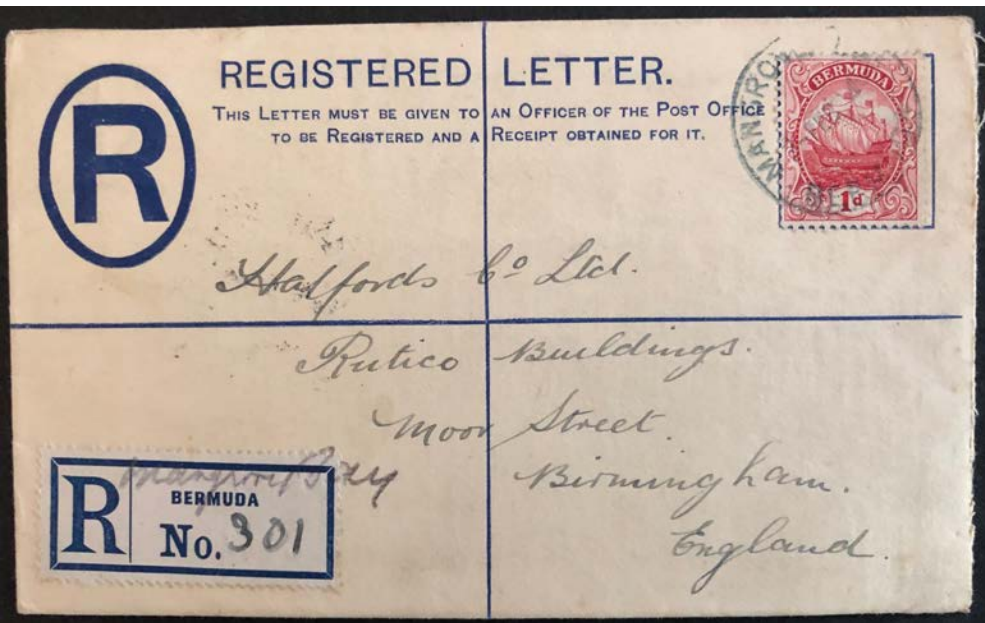 R
REGISTERED LETTER.
THIS LETTER MUST BE GIVEN TO AN OFFICER OF THE POST OFFICE
TO BE REGISTERED AND A RECEIPT OBTAINED FOR IT.
BERMUDA
1d
Halfords Co Ltd.
Rutico Buildings.
Moor Street.
Birmingham.
England.
Mangrove Bay
R
BERMUDA
No. 301